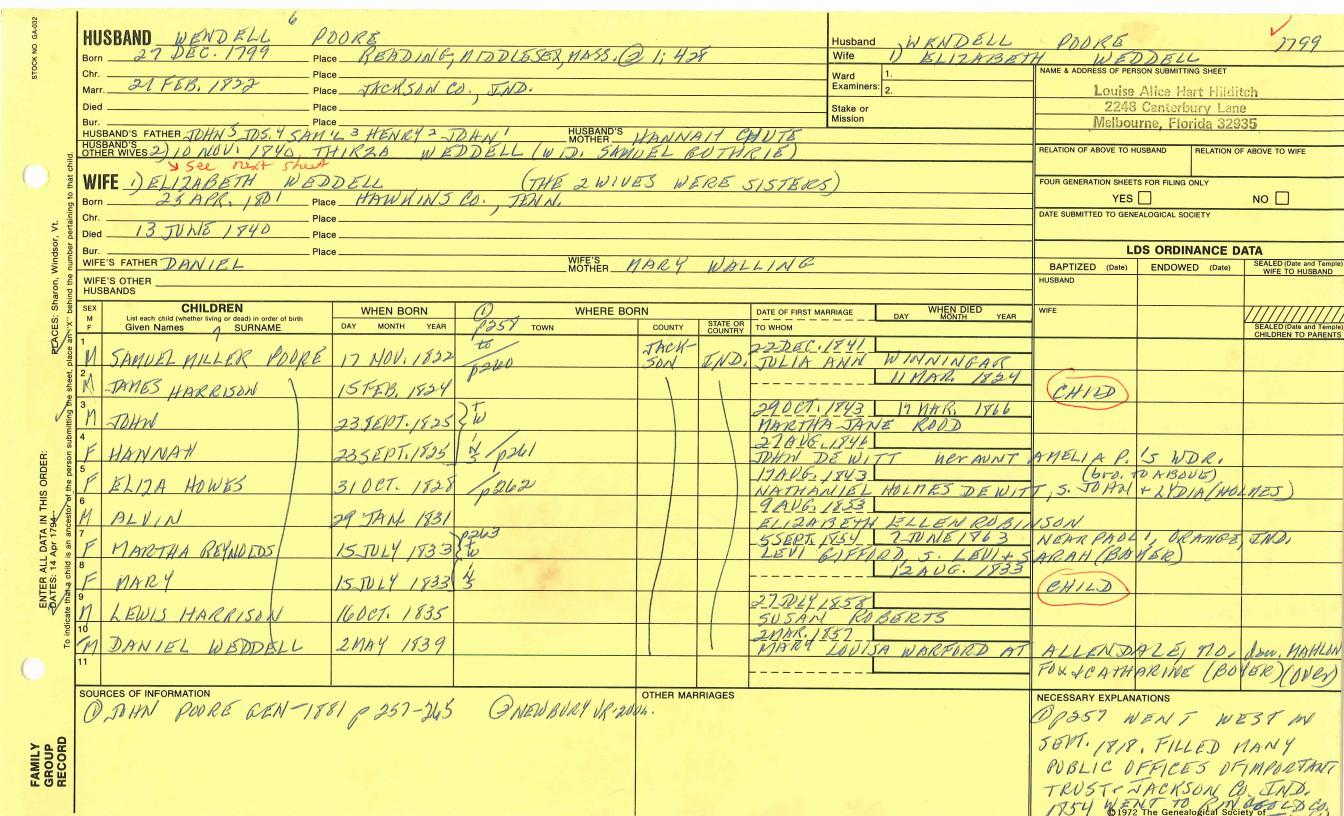 6
HUSBAND WENDELL POORE
Born 27 DEC. 1799 Place READING, MIDDLESEX, MASS. ② 1; 428
Chr. Place
Marr. 21 FEB. 1822 Place JACKSON CO., IND.
Died Place
Bur. Place
HUSBAND'S FATHER JOHN 5 JOS. 4 SAM'L 3 HENRY 2 JOHN 1 HUSBAND'S MOTHER HANNAH CHUTE
HUSBAND'S OTHER WIVES 2) 10 NOV. 1840 THIRZA WEDDELL (WID. SAMUEL GUTHRIE)
see next sheet
WIFE 1) ELIZABETH WEDDELL (THE 2 WIVES WERE SISTERS)
Born 25 APR. 1801 Place HAWKINS CO., TENN.
Chr. Place
Died 13 JUNE 1840 Place
Bur. Place
WIFE'S FATHER DANIEL WIFE'S MOTHER MARY WALLING
WIFE'S OTHER HUSBANDS
Husband WENDELL POORE 1799
Wife 1) ELIZABETH WEDDELL
Ward Examiners: 1.
2.
Stake or Mission
NAME & ADDRESS OF PERSON SUBMITTING SHEET
Louise Alice Hart Hilditch
2248 Canterbury Lane
Melbourne, Florida 32935
RELATION OF ABOVE TO HUSBAND RELATION OF ABOVE TO WIFE
FOUR GENERATION SHEETS FOR FILING ONLY
YES NO
DATE SUBMITTED TO GENEALOGICAL SOCIETY
LDS ORDINANCE DATA
BAPTIZED (Date) ENDOWED (Date) SEALED (Date and Temple) WIFE TO HUSBAND
HUSBAND
WIFE
SEALED (Date and Temple) CHILDREN TO PARENTS
SEX M F
CHILDREN
List each child (whether living or dead) in order of birth
Given Names SURNAME
WHEN BORN
DAY MONTH YEAR
① p257 to p260
WHERE BORN
TOWN COUNTY STATE OR COUNTRY
DATE OF FIRST MARRIAGE
TO WHOM
WHEN DIED
DAY MONTH YEAR
1 M SAMUEL MILLER POORE 17 NOV. 1822 JACKSON IND. 22 DEC. 1841
JULIA ANN WINNINGAR
2 M JAMES HARRISON 15 FEB. 1824 11 MAR. 1824 CHILD
3 M JOHN 23 SEPT. 1825 TW 29 OCT. 1843 17 MAR. 1866
MARTHA JANE RODD
4 F HANNAH 23 SEPT. 1825 INS /p261 27 AUG. 1846
JOHN DEWITT her AUNT AMELIA P.'S WDR.
5 F ELIZA HOWES 31 OCT. 1828 /p262 17 AUG. 1843 (bro. TO ABOVE)
NATHANIEL HOLMES DEWITT, S. JOHN + LYDIA (HOLMES)
6 M ALVIN 29 JAN. 1831 9 AUG. 1853
ELIZABETH ELLEN ROBINSON
7 F MARTHA REYNOLDS 15 JULY 1833 p263 TW 5 SEPT. 1854 7 JUNE 1863 NEAR PAOLI, ORANGE, IND.
LEVI GIFFORD, S. LEVI + SARAH (BAKER)
8 F MARY 15 JULY 1833 INS 12 AUG. 1833 CHILD
9 M LEWIS HARRISON 16 OCT. 1835 27 JULY 1858
SUSAN ROBERTS
10 M DANIEL WEDDELL 2 MAY 1839 2 MAR. 1857
MARY LOUISA WARFORD AT ALLENDALE, MO., dau. MAHLON
11 FOX + CATHARINE (BOYER) (OVER)
SOURCES OF INFORMATION
① JOHN POORE GEN-1881 p 257-265 ② NEWBURY VR-
OTHER MARRIAGES
NECESSARY EXPLANATIONS
① p257 WENT WEST IN
SEPT. 1818. FILLED MANY
PUBLIC OFFICES OF IMPORTANT
TRUST JACKSON CO. IND.
1854 WENT TO RINGGOLD CO.
©1972 The Genealogical Society of
STOCK NO. GA-032
FAMILY GROUP RECORD
ENTER ALL DATA IN THIS ORDER:
DATES: 14 Apr 1794
PLACES: Sharon, Windsor, Vt.
To indicate that a child is an ancestor of the person submitting the sheet, place an "X" behind the number pertaining to that child.